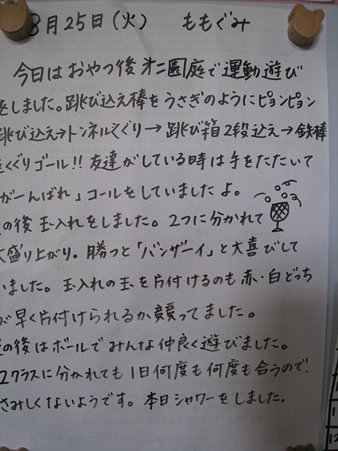 8月25日(火) ももぐみ
今日はおやつ後オ二園庭で運動遊び
をしました。跳び込え棒をうさぎのようにピョンピョン
跳び込え→トンネルくぐり→跳び箱2段込え→鉄棒
くぐりゴール!!友達がしている時は手をたたいて
がーんばれ」コールをしていましたよ。
の後玉入れをしました。2つに分かれて
盛り上がり。勝つと「バンザーイ」と大喜びして
いました。玉入れの玉を片付けるのも赤・白どっち
が早く片付けられるか競ってました。
の後はボールでみんな仲良く遊びました。
2クラスに分かれても1日何度も何度も合うので
さみしくないようです。本日シャワーをしました。